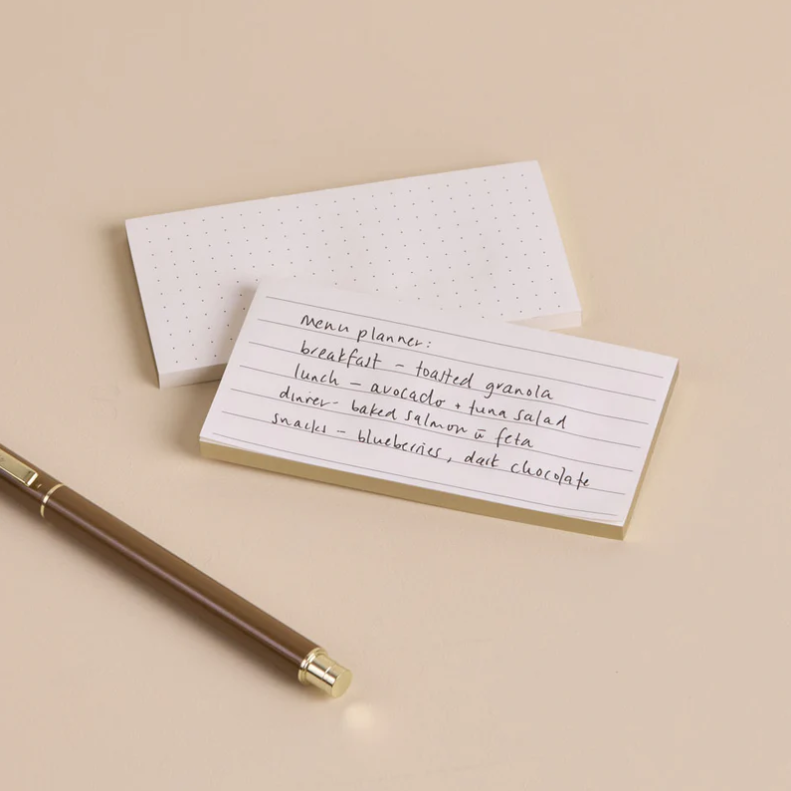 menu planner:
breakfast – toasted granola
lunch – avocado + tuna salad
dinner - baked salmon c̄ feta
snacks – blueberries, dark chocolate